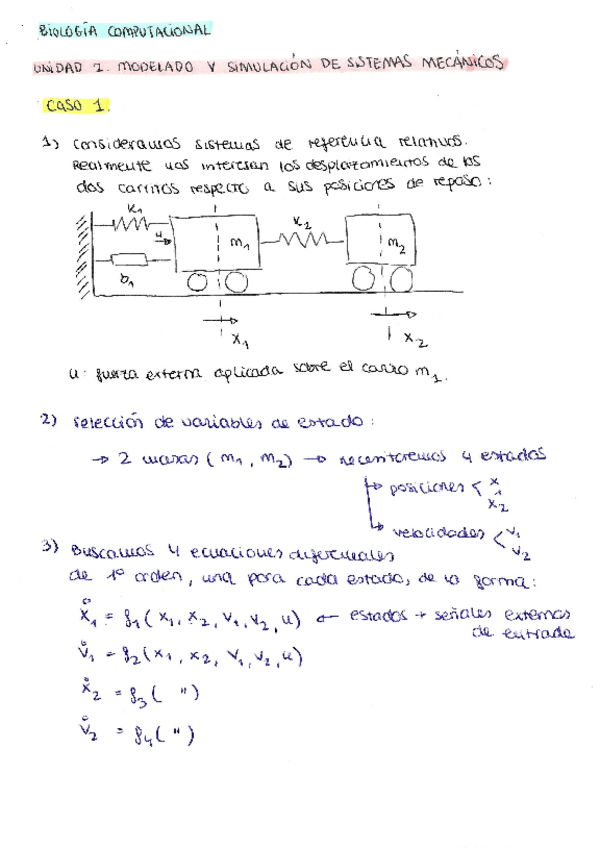 BIOLOGÍA COMPUTACIONAL
UNIDAD 2. MODELADO Y SIMULACIÓN DE SISTEMAS MECÁNICOS
CASO 1.
1) Consideramos sistemas de referencia relativos.
Realmente nos interesan los desplazamientos de los
dos carritos respecto a sus posiciones de reposo:
K1
K2
u
m1
m2
b1
x1
x2
u: fuerza externa aplicada sobre el carro m1.
2) Selección de variables de estado:
→ 2 masas (m1, m2) → necesitaremos 4 estados
→ posiciones < x1
x2
→ velocidades < v1
v2
3) Buscamos 4 ecuaciones diferenciales
de 1º orden, una para cada estado, de la forma:
ẋ1 = f1(x1, x2, v1, v2, u) ← estados + señales externas
de entrada
v̇1 = f2(x1, x2, v1, v2, u)
ẋ2 = f3( " )
v̇2 = f4( " )